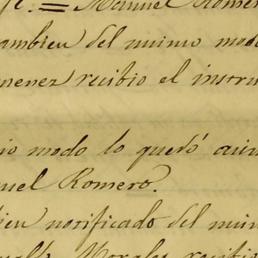 Manuel Romero
tambien del mismo modo
menez recibio el instru
io modo lo quedó
uel Romero.
ien notificado del mism
Morales recibio